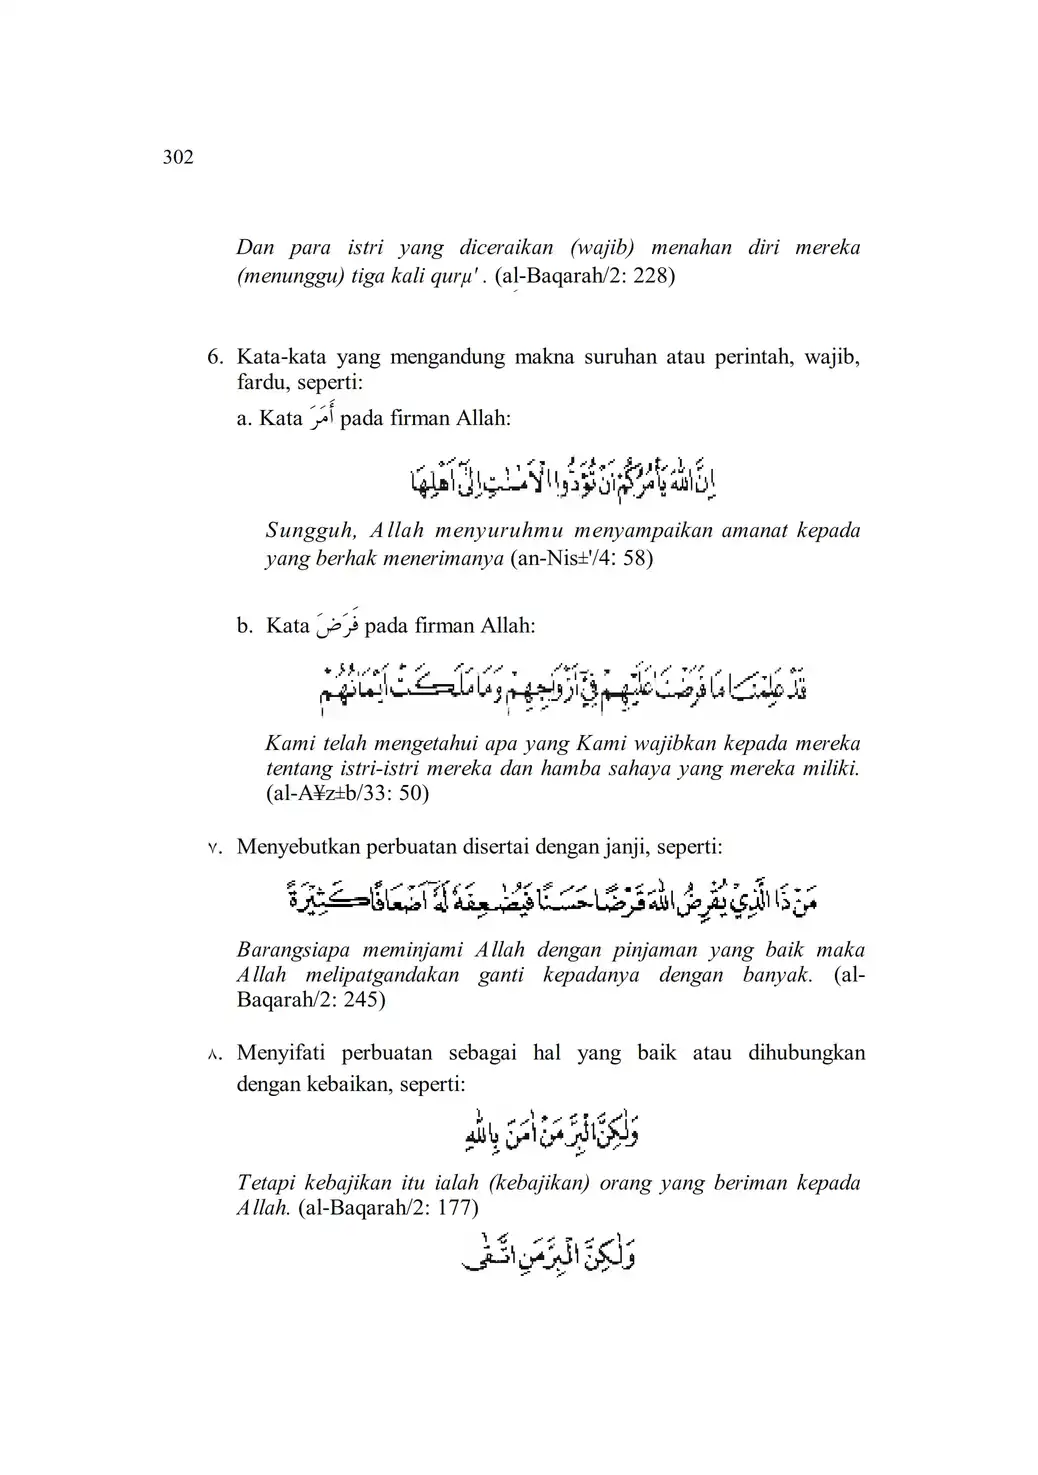 302
Dan para istri yang diceraikan (wajib) menahan diri mereka
(menunggu) tiga kali qurµ' . (al-Baqarah/2: 228)
6. Kata-kata yang mengandung makna suruhan atau perintah, wajib,
fardu, seperti:
a. Kata أَمَرَ pada firman Allah:
اِنَّ اللّٰهَ يَأْمُرُكُمْ اَنْ تُؤَدُّوا الْاَمٰنٰتِ اِلٰٓى اَهْلِهَا
Sungguh, Allah menyuruhmu menyampaikan amanat kepada
yang berhak menerimanya (an-Nis±'/4: 58)
b. Kata فَرَضَ pada firman Allah:
قَدْ عَلِمْنَا مَا فَرَضْنَا عَلَيْهِمْ فِيْٓ اَزْوَاجِهِمْ وَمَا مَلَكَتْ اَيْمَانُهُمْ
Kami telah mengetahui apa yang Kami wajibkan kepada mereka
tentang istri-istri mereka dan hamba sahaya yang mereka miliki.
(al-A¥z±b/33: 50)
٧. Menyebutkan perbuatan disertai dengan janji, seperti:
مَنْ ذَا الَّذِيْ يُقْرِضُ اللّٰهَ قَرْضًا حَسَنًا فَيُضٰعِفَهٗ لَهٗٓ اَضْعَافًا كَثِيْرَةً
Barangsiapa meminjami Allah dengan pinjaman yang baik maka
Allah melipatgandakan ganti kepadanya dengan banyak. (al-
Baqarah/2: 245)
٨. Menyifati perbuatan sebagai hal yang baik atau dihubungkan
dengan kebaikan, seperti:
وَلٰكِنَّ الْبِرَّ مَنْ اٰمَنَ بِاللّٰهِ
Tetapi kebajikan itu ialah (kebajikan) orang yang beriman kepada
Allah. (al-Baqarah/2: 177)
وَلٰكِنَّ الْبِرَّ مَنِ اتَّقٰى